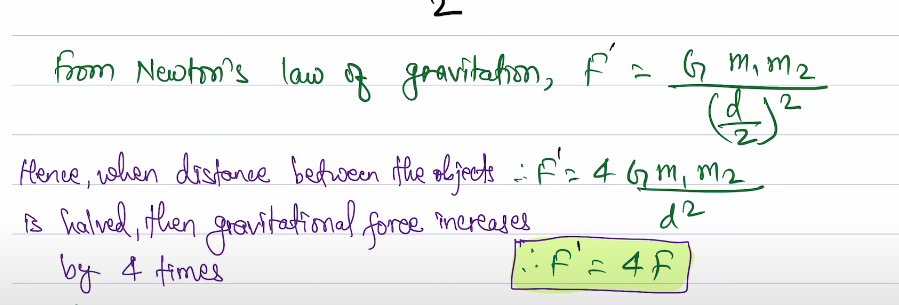 2
from Newton's law of gravitation, F' = G m₁ m₂
(d/2)²
Hence, when distance between the objects ∴ F' = 4 G m₁ m₂
is halved, then gravitational force increases d²
by 4 times ∴ F' = 4F